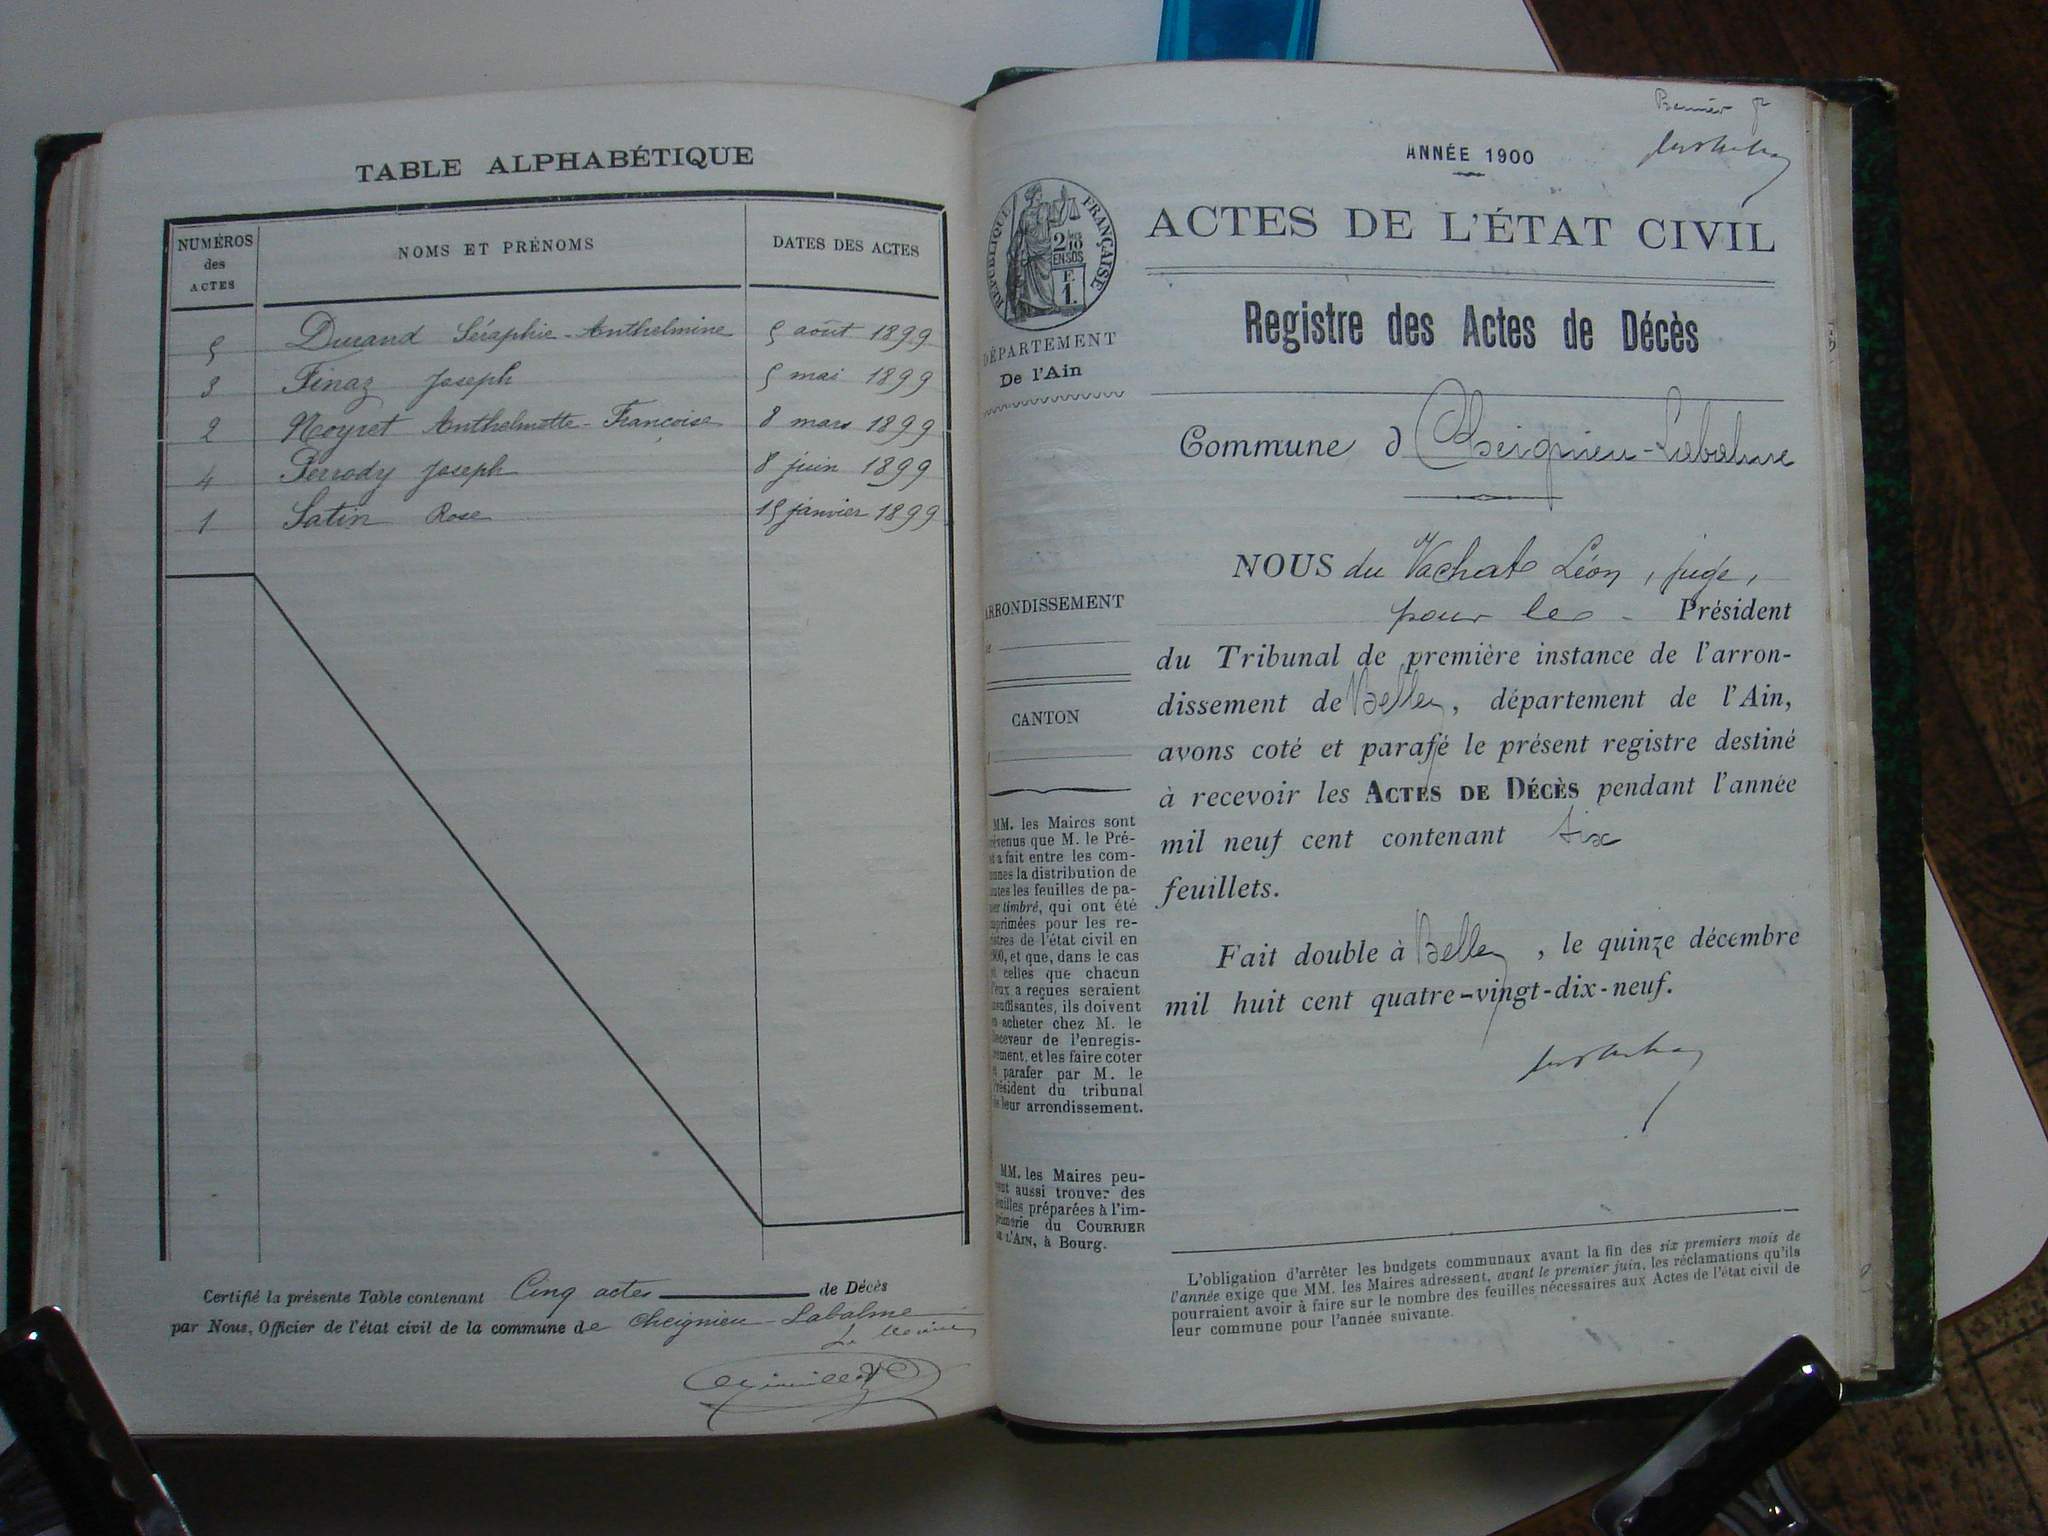 TABLE ALPHABÉTIQUE
NUMÉROS des ACTES
NOMS ET PRÉNOMS
DATES DES ACTES
5 Durand Séraphie-Anthelmine 5 août 1899
3 Finaz Joseph 5 mai 1899
2 Moyret Anthelmette-Françoise 8 mars 1899
4 Perrody Joseph 8 juin 1899
1 Satin Rose 15 janvier 1899
Certifié la présente Table contenant Cinq actes de Décès
par Nous, Officier de l'état civil de la commune de Cheignieu-Labalme
ANNÉE 1900
RÉPUBLIQUE FRANÇAISE
2/10 EN SUS
F. 1.
DÉPARTEMENT
De l'Ain
ARRONDISSEMENT
CANTON
MM. les Maires sont
prévenus que M. le Pré-
fet a fait entre les com-
munes la distribution de
toutes les feuilles de pa-
pier timbré, qui ont été
imprimées pour les re-
gistres de l'état civil en
1900, et que, dans le cas
où celles que chacun
d'eux a reçues seraient
insuffisantes, ils doivent
en acheter chez M. le
Receveur de l'enregis-
trement, et les faire coter
et parafer par M. le
Président du tribunal
de leur arrondissement.
MM. les Maires peu-
vent aussi trouver des
feuilles préparées à l'im-
primerie du COURRIER
DE L'AIN, à Bourg.
ACTES DE L'ÉTAT CIVIL
Registre des Actes de Décès
Commune d Cheignieu-Labalme
NOUS du Vachat Léon, juge,
pour le - Président
du Tribunal de première instance de l'arron-
dissement de Belley, département de l'Ain,
avons coté et parafé le présent registre destiné
à recevoir les ACTES DE DÉCÈS pendant l'année
mil neuf cent contenant six
feuillets.
Fait double à Belley, le quinze décembre
mil huit cent quatre-vingt-dix-neuf.
L'obligation d'arrêter les budgets communaux avant la fin des six premiers mois de
l'année exige que MM. les Maires adressent, avant le premier juin, les réclamations qu'ils
pourraient avoir à faire sur le nombre des feuilles nécessaires aux Actes de l'état civil de
leur commune pour l'année suivante.